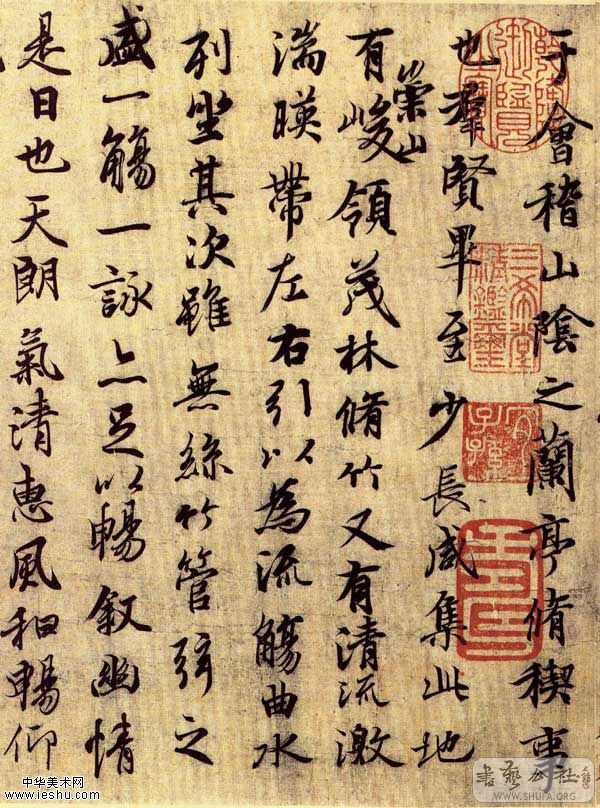 于會稽山陰之蘭亭脩稧事
也羣賢畢至少長咸集此地
有崇山峻領茂林脩竹又有清流激
湍暎帶左右引以為流觴曲水
列坐其次雖無絲竹管弦之
盛一觴一詠亦足以暢敘幽情
是日也天朗氣清惠風和暢仰
乾隆御覽之寶
三希堂精鑑璽
宜子孫
中华美术网
ieshu.com
WWW.SHUFA.ORG